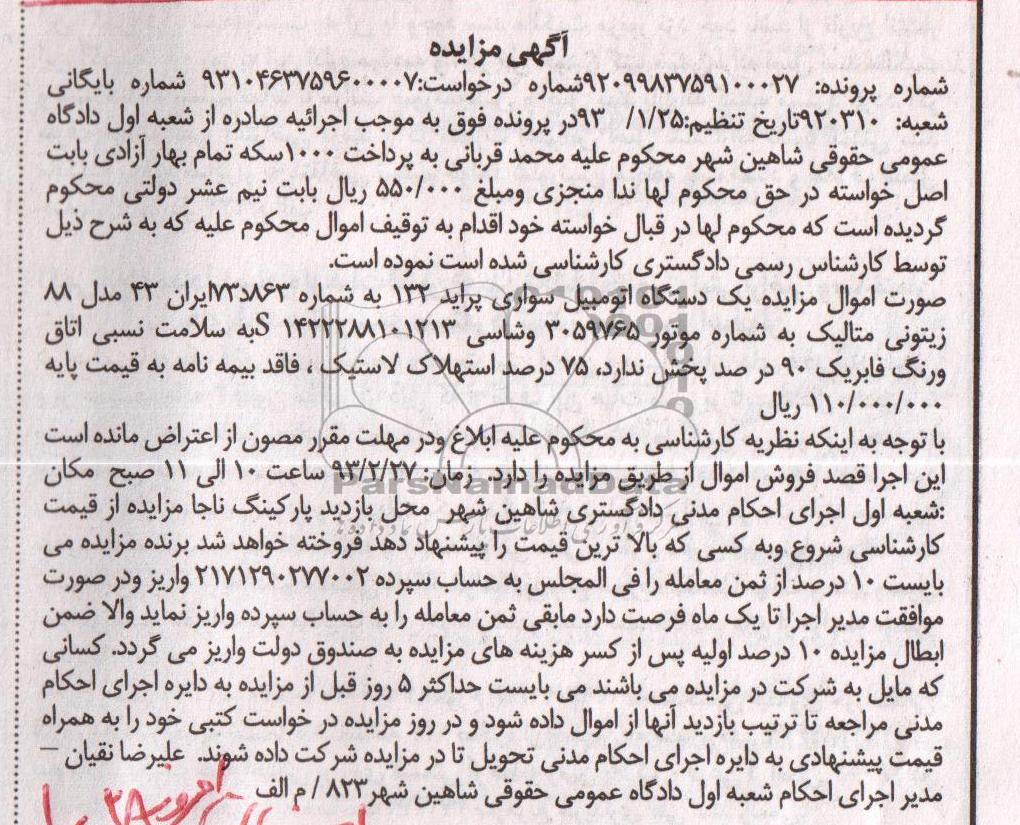 آگهی مزایده
شماره پرونده: ۹۲۰۹۹۸۳۷۵۹۱۰۰۰۲۷شماره درخواست:۹۳۱۰۴۶۳۷۵۹۶۰۰۰۰۷ شماره بایگانی
شعبه: ۹۲۰۳۱۰تاریخ تنظیم:۹۳ /۱/۲۵در پرونده فوق به موجب اجرائیه صادره از شعبه اول دادگاه
عمومی حقوقی شاهین شهر محکوم علیه محمد قربانی به پرداخت ۱۰۰۰سکه تمام بهار آزادی بابت
اصل خواسته در حق محکوم لها ندا منجزی ومبلغ ۵۵۰/۰۰۰ ریال بابت نیم عشر دولتی محکوم
گردیده است که محکوم لها در قبال خواسته خود اقدام به توقیف اموال محکوم علیه که به شرح ذیل
توسط کارشناس رسمی دادگستری کارشناسی شده است نموده است.
صورت اموال مزایده یک دستگاه اتومبیل سواری پراید ۱۳۲ به شماره ۸۶۳د۷۳ایران ۴۳ مدل ۸۸
زیتونی متالیک به شماره موتور ۳۰۵۹۷۶۵ وشاسی S ۱۴۲۲۲۸۸۱۰۱۲۱۳به سلامت نسبی اتاق
ورنگ فابریک ۹۰ در صد پخش ندارد، ۷۵ درصد استهلاک لاستیک ، فاقد بیمه نامه به قیمت پایه
۱۱۰/۰۰۰/۰۰۰ ریال
با توجه به اینکه نظریه کارشناسی به محکوم علیه ابلاغ ودر مهلت مقرر مصون از اعتراض مانده است
این اجرا قصد فروش اموال از طریق مزایده را دارد. زمان: ۹۳/۲/۲۷ ساعت ۱۰ الی ۱۱ صبح مکان
:شعبه اول اجرای احکام مدنی دادگستری شاهین شهر محل بازدید پارکینگ ناجا مزایده از قیمت
کارشناسی شروع وبه کسی که بالا ترین قیمت را پیشنهاد دهد فروخته خواهد شد برنده مزایده می
بایست ۱۰ درصد از ثمن معامله را فی المجلس به حساب سپرده ۲۱۷۱۲۹۰۲۷۷۰۰۲ واریز ودر صورت
موافقت مدیر اجرا تا یک ماه فرصت دارد مابقی ثمن معامله را به حساب سپرده واریز نماید والا ضمن
ابطال مزایده ۱۰ درصد اولیه پس از کسر هزینه های مزایده به صندوق دولت واریز می گردد. کسانی
که مایل به شرکت در مزایده می باشند می بایست حداکثر ۵ روز قبل از مزایده به دایره اجرای احکام
مدنی مراجعه تا ترتیب بازدید آنها از اموال داده شود و در روز مزایده در خواست کتبی خود را به همراه
قیمت پیشنهادی به دایره اجرای احکام مدنی تحویل تا در مزایده شرکت داده شوند. علیرضا نقیان –
مدیر اجرای احکام شعبه اول دادگاه عمومی حقوقی شاهین شهر۸۲۳ / م الف
ParsNamadData